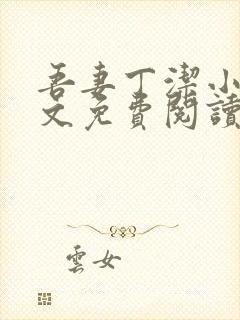 吾妻丁潔小
文免費閱讀
雲女